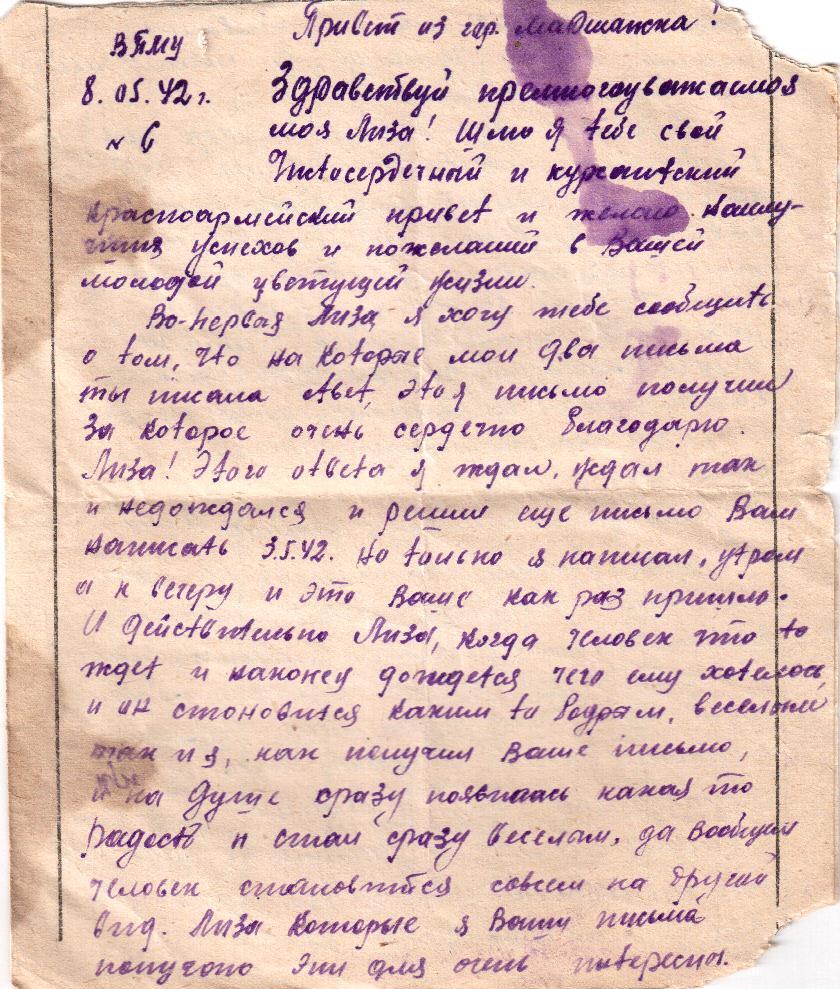 Привет из гор. Мадшанска!
ВПМУ
8.05.42 г. Здравствуй премногоуважаемая
№ 6 моя Лиза! Шлю я тебе свой
Чистосердечный и курсантский
красноармейский привет и желаю наилу-
чшия успехов и пожеланий в Вашей
молодой цветущей жизни.
Во-первая Лиза, я хочу тебе сообщить
о том, что на которые мои два письма
ты писала ответ, это я письмо получил
за которое очень сердечно благодарю.
Лиза! Этого ответа я ждал, ждал так
и недождался и решил еще письмо Вам
написать 3.5.42. Но только я написал, утром
а к вечеру и это Ваше как раз пришло.
И действительно Лиза, когда человек что то
ждет и наконец дождется чего ему хотелось,
и он становится каким то бодрым, веселым
так и я, как получил Ваше письмо,
и на душе сразу появилась какая то
радость и стал сразу веселам, да вообщем
человек становится совсем на другий
вид. Лиза которые я Ваши письма
получаю эти для очень интересны.